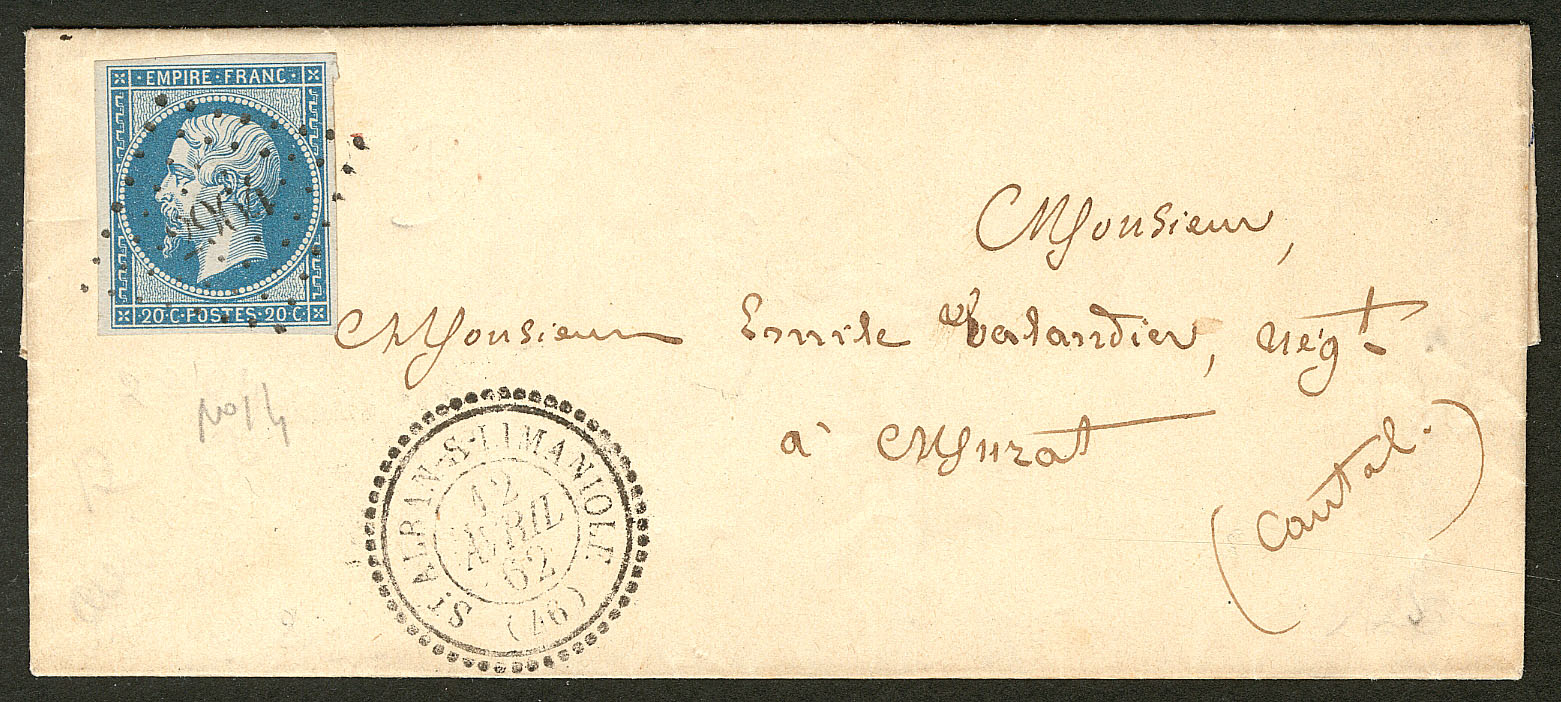 EMPIRE·FRANC·
20·C·POSTES·20·C·
Monsieur,
Monsieur Emile Valandier, Nég.t
à Murat
(Cantal.)
No 14
ST ALBAN-S-LIMANIOLE
12
AVRIL
62
(46)